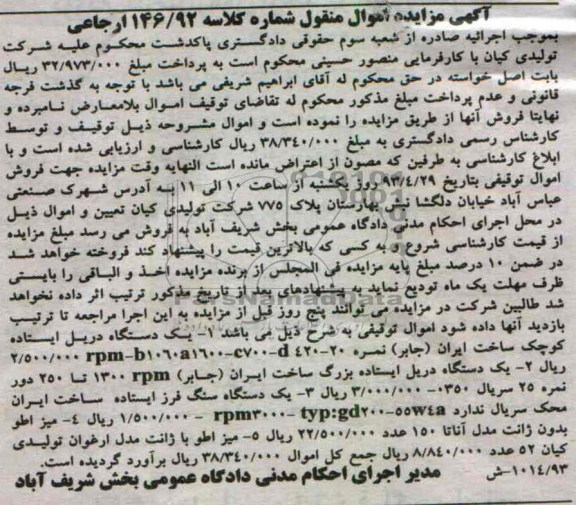 آگهی مزایده اموال منقول شماره کلاسه ۱۴۶/۹۲ ارجاعی
بموجب اجرائیه صادره از شعبه سوم حقوقی دادگستری پاکدشت محکوم علیه شرکت
تولیدی کیان با کارفرمایی منصور حسینی محکوم است به پرداخت مبلغ ۳۲/۹۷۳/۰۰۰ ریال
بابت اصل خواسته در حق محکوم له آقای ابراهیم شریفی می باشد با توجه به گذشت فرجه
قانونی و عدم پرداخت مبلغ مذکور محکوم له تقاضای توقیف اموال بلامعارض نامبرده و
نهایتا فروش آنها از طریق مزایده را نموده است و اموال مشروحه ذیل توقیف و توسط
کارشناس رسمی دادگستری به مبلغ ۳۸/۳۴۰/۰۰۰ ریال کارشناسی و ارزیابی شده است و با
ابلاغ کارشناسی به طرفین که مصون از اعتراض مانده است النهایه وقت مزایده جهت فروش
اموال توقیفی بتاریخ ۹۳/۴/۲۹ روز یکشنبه از ساعت ۱۰ الی ۱۱ به آدرس شهرک صنعتی
عباس آباد خیابان دلگشا نبش بهارستان پلاک ۷۷۵ شرکت تولیدی کیان تعیین و اموال ذیل
در محل اجرای احکام مدنی دادگاه عمومی بخش شریف آباد به فروش می رسد مبلغ مزایده
از قیمت کارشناسی شروع و به کسی که بالاترین قیمت را پیشنهاد کند فروخته خواهد شد
در ضمن ۱۰ درصد مبلغ پایه مزایده فی المجلس از برنده مزایده اخذ و الباقی را بایستی
ظرف مهلت یک ماه تودیع نماید به پیشنهادهای بعد از تاریخ مذکور ترتیب اثر داده نخواهد
شد طالبین شرکت در مزایده می توانند پنج روز قبل از مزایده به این اجرا مراجعه تا ترتیب
بازدید آنها داده شود اموال توقیفی به شرح ذیل می باشد ۱- یک دستگاه دریل ایستاده
کوچک ساخت ایران (جابر) نمره ۲۰-۴۲۰ rpm-b۱۰۶۰a۱۶۰۰-c۷۰۰-d ۲/۵۰۰/۰۰۰
ریال ۲- یک دستگاه دریل ایستاده بزرگ ساخت ایران (جابر) rpm ۱۳۰۰ تا ۲۵۰ دور
نمره ۲۵ سریال ۰۳۵۰- ۳/۰۰۰/۰۰۰ ریال ۳- یک دستگاه سنگ فرز ایستاده ساخت ایران
محک سریال ندارد rpm۳۰۰۰- typ:gd۲۰۰-۵۵w۴a - ۱/۵۰۰/۰۰۰ ریال ۴- میز اطو
بدون ژانت مدل آناتا ۱۵۰ عدد ۲۲/۵۰۰/۰۰۰ ریال ۵- میز اطو با ژانت مدل ارغوان تولیدی
کیان ۵۲ عدد ۸/۸۴۰/۰۰۰ ریال جمع کل اموال ۳۸/۳۴۰/۰۰۰ ریال برآورد گردیده است.
۱۰۱۴/۹۳-ش مدیر اجرای احکام مدنی دادگاه عمومی بخش شریف آباد